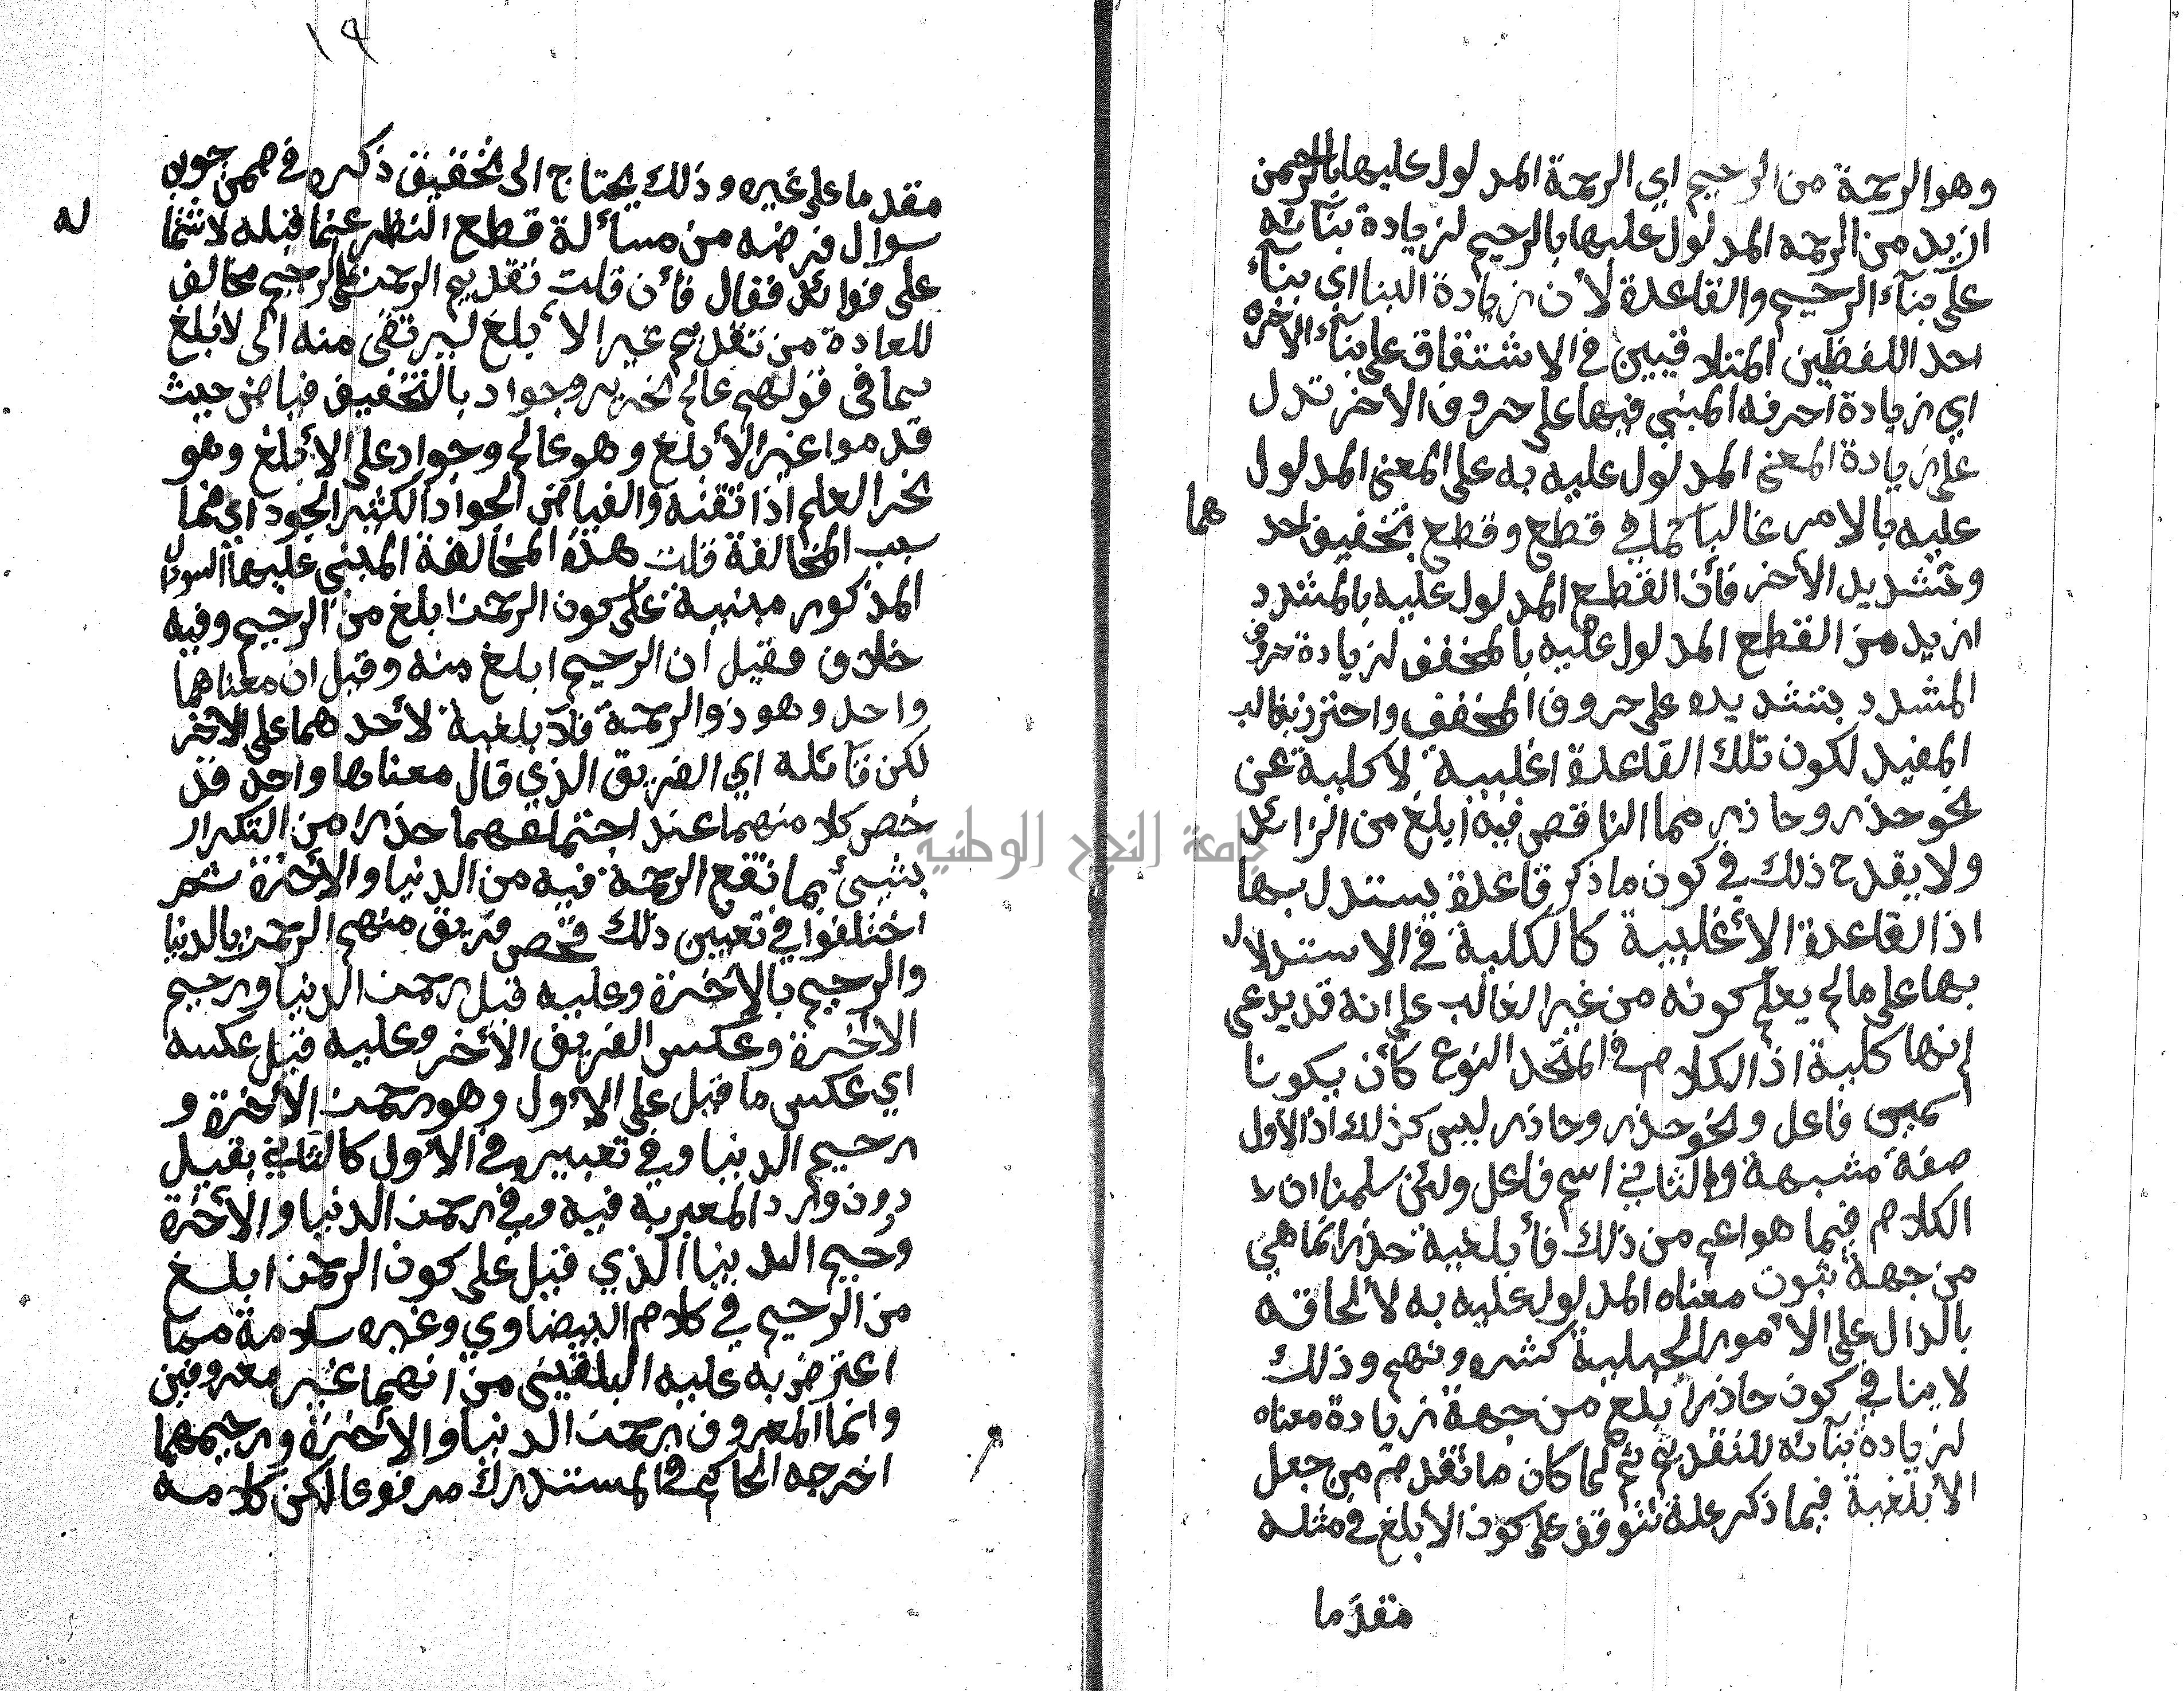 وهو الرحمة من الرحيم اي الرحمة المدلول عليها بالرحمن
ازيد من الرحمه المدلول عليها بالرحيم لزيادة بنآئه
على بنآء الرحيم والقاعدة لأن زيادة البنا اي بنآء
احد اللفظين المتلاقيين في الاشتقاق على بناء الاخر
اي زيادة احرفه المبني فيها على حروف الأخر تدل
على زيادة المعنى المدلول عليه به على المعنى المدلول
عليه بالامر غالبا كما في قطع وقطع بتخفيف احد
هما
وتشديد الأخر فأن القطع المدلول عليه بالمشدد
ازيد من القطع المدلول عليه بالمخفف لزيادة حروف
المشدد بتشديده على حروف المخفف واحترز بغالب
المفيد لكون تلك القاعدة اغلبية لا كلية عن
نحو حذر وحاذر مما الناقص فيه ابلغ من الزائد
ولا يقدح ذلك في كون ما ذكر قاعدة يستدل بها
اذ القاعدة الأغلبية كالكلية في الاستدلال
بها على مالم يعلم كونه من غير الغالب على انه قد يدعى
انها كلية اذ الكلام في المتحد النوع كأن يكونا
اسمين فاعل ونحو حذر وحاذر ليس كذلك اذ الأول
صفة مشبهة والثاني اسم فاعل ولئن سلمنا ان
الكلام فيما هو اعم من ذلك فأبلغية حذر انما هي
من جهة ثبوت معناه المدلول عليه به لألحاقه
بالدال على الأمور الجبلية كشره ونهم وذلك
لا ينافي كون حاذر ابلغ من جهة زيادة معناه
لزيادة بنآئه للتقديم ثم لما كان ما تقدم من جعل
الأبلغية فيما ذكر علة تتوقف على كون الأبلغ في مثله
مقدما
١٩
مقدما على غيره وذلك يحتاج الى تحقيق ذكره في ضمن جواب
سوال فرضه من مسألة قطع النظر عما قبله لاشتما
له
على فوائد فقال فأن قلت تقديم الرحمن على الرحيم مخالف
للعادة من تقديم غير الأبلغ ليرتقى منه الى الأبلغ
كما في قولهم عالم نحرير وجواد بالتخفيف فياض حيث
قدموا غير الأبلغ وهو عالم وجواد على الأبلغ وهو
نحر العلم اذا تقنه والفياض الجواد الكثير الجود اي فما
سبب المخالفة قلت هذه المخالفة المبنى عليها السوال
المذكور مبنية على كون الرحمن ابلغ من الرحيم وفيه
خلاف فقيل أن الرحيم ابلغ منه وقيل ان معناهما
واحد وهو ذو الرحمة فلا ابلغية لأحدهما على الأخر
لكن قائله اي الفريق الذي قال معناهما واحد قد
خص كلا منهما عند اجتماعهما حذرا من التكرار
بشيئ مما تقع الرحمة فيه من الدنيا والأخرة ثم
اختلفوا في تعيين ذلك فخص فريق منهم الرحمن بالدنيا
والرحيم بالأخرة وعليه قيل رحمن الدنيا ورحيم
الأخرة وعكس الفريق الأخر وعليه قيل عكسه
اي عكس ما قيل على الأول وهو رحمن الأخرة و
رحيم الدنيا وفي تعبيره في الأول كالثاني بقيل
دون ورد المعبر به فيه وفي رحمن الدنيا والأخرة
ورحيم الدنيا الذي قيل على كون الرحمن ابلغ
من الرحيم في كلام البيضاوي وغيره سلامة مما
اعترض به عليه البلقيني من انهما غير معروفين
وانما المعروف رحمن الدنيا والأخرة ورحيمهما
اخرجه الحاكم في المستدرك مرفوعا لكن كلامه
جامعة النجاح الوطنية